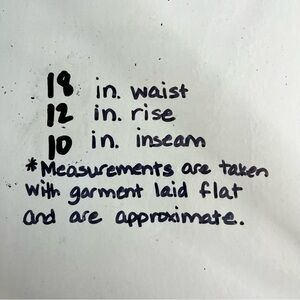 18 in. waist
12 in. rise
10 in. inseam
*Measurements are taken
with garment laid flat
and are approximate.